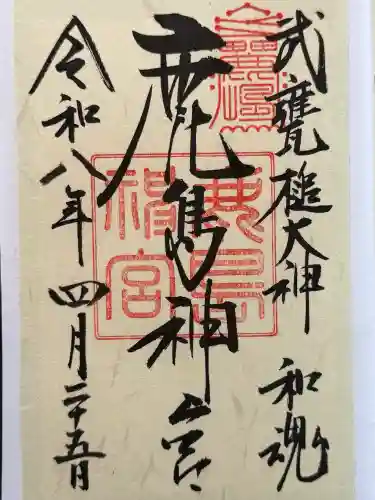 武甕槌大神 和魂
鹿島神宮
鹿島
神宮
令和八年四月二十五日